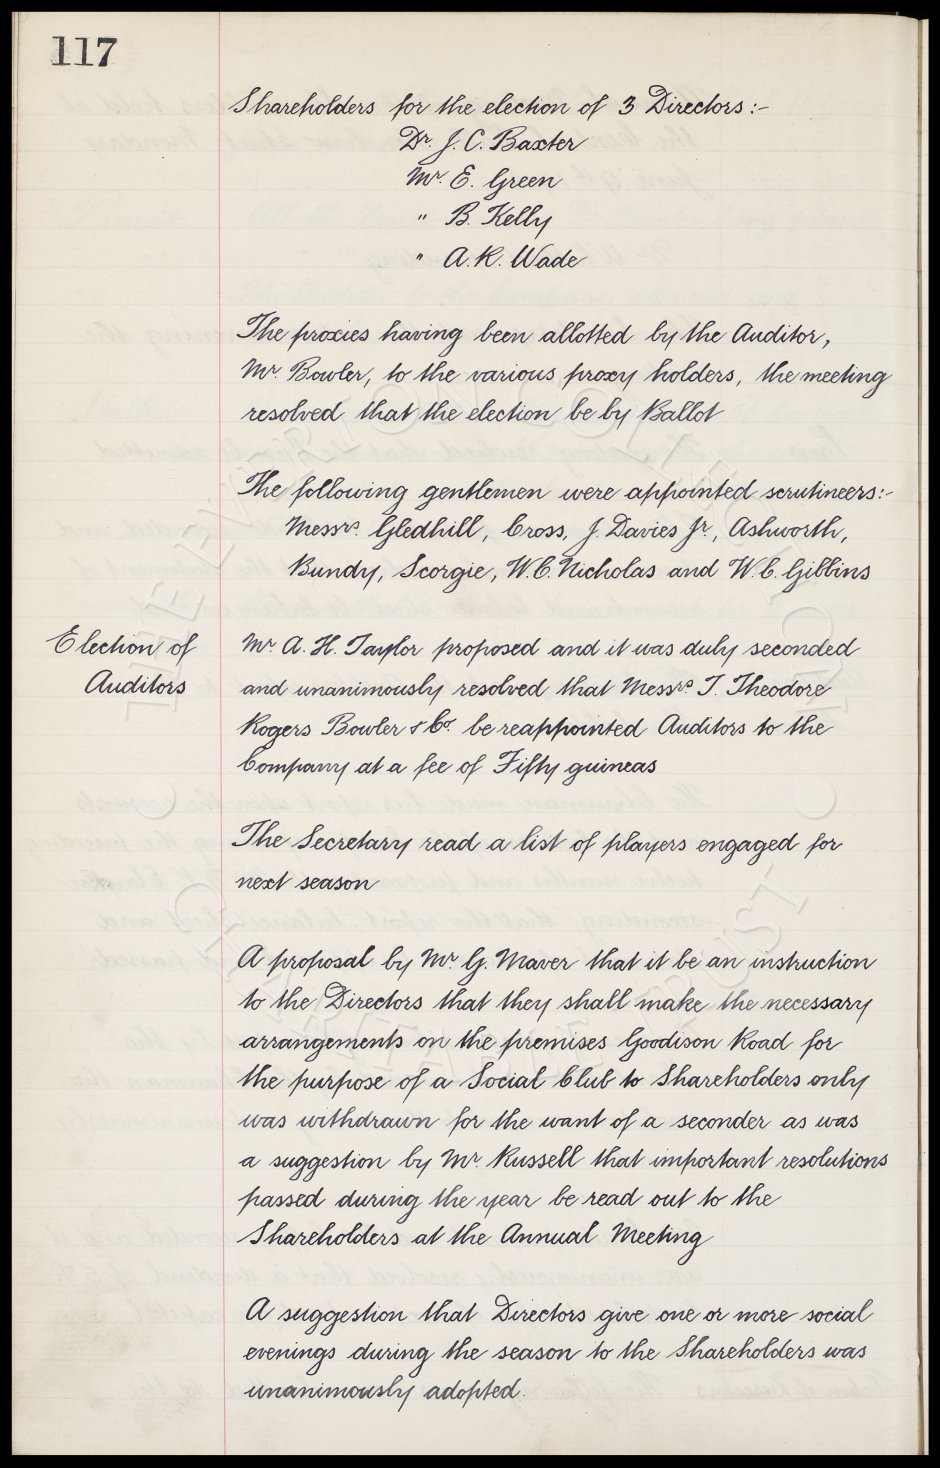 117
Shareholders for the election of 3 Directors :-
Dr. J. C. Baxter
Mr. E. Green
" B. Kelly
" A. R. Wade
The proxies having been allotted by the Auditor,
Mr. Bowler, to the various proxy holders, the meeting
resolved that the election be by Ballot
The following gentlemen were appointed scrutineers:-
Messrs. Gledhill, Cross, J. Davies Jr, Ashworth,
Bundy, Scorgie, W.C. Nicholas and W.C. Gibbins
Election of
Auditors
Mr A. H. Taylor proposed and it was duly seconded
and unanimously resolved that Messrs T. Theodore
Rogers Bowler & Co. be reappointed Auditors to the
Company at a fee of Fifty guineas
The Secretary read a list of players engaged for
next season
A proposal by Mr. G. Maver that it be an instruction
to the Directors that they shall make the necessary
arrangements on the premises Goodison Road for
the purpose of a Social Club to Shareholders only
was withdrawn for the want of a seconder as was
a suggestion by Mr. Russell that important resolutions
passed during the year be read out to the
Shareholders at the Annual Meeting
A suggestion that Directors give one or more social
evenings during the season to the Shareholders was
unanimously adopted.